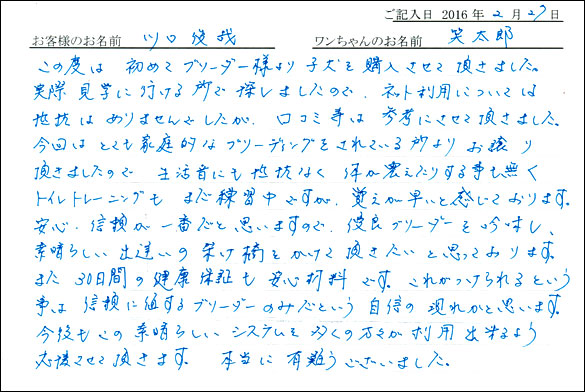 ご記入日 2016年2月27日
お客様のお名前 川口俊哉 ワンちゃんのお名前 笑太郎
この度は 初めてブリーダー様より子犬を購入させて頂きました。
実際見学に行ける所で探しましたので、ネット利用については
抵抗はありませんでしたが、口コミ等は 参考にさせて頂きました。
今回は とても家庭的なブリーディングをされている所よりお譲り
頂きましたので 生活音にも抵抗なく 何か震えたりする事も無く
トイレトレーニングも まだ練習中ですが、覚えが早いと感じております。
安心・信頼が一番だと思いますので、優良ブリーダーを吟味し、
素晴らしい出逢いの架け橋をかけて頂きたいと思っております。
また 30日間の健康保証も安心材料です。これがつけられるという
事は 信頼に値するブリーダーのみだという 自信の現れかと思います。
今後もこの素晴らしいシステムを多くの方々が利用出来るよう
応援させて頂きます。 本当に有難うございました。